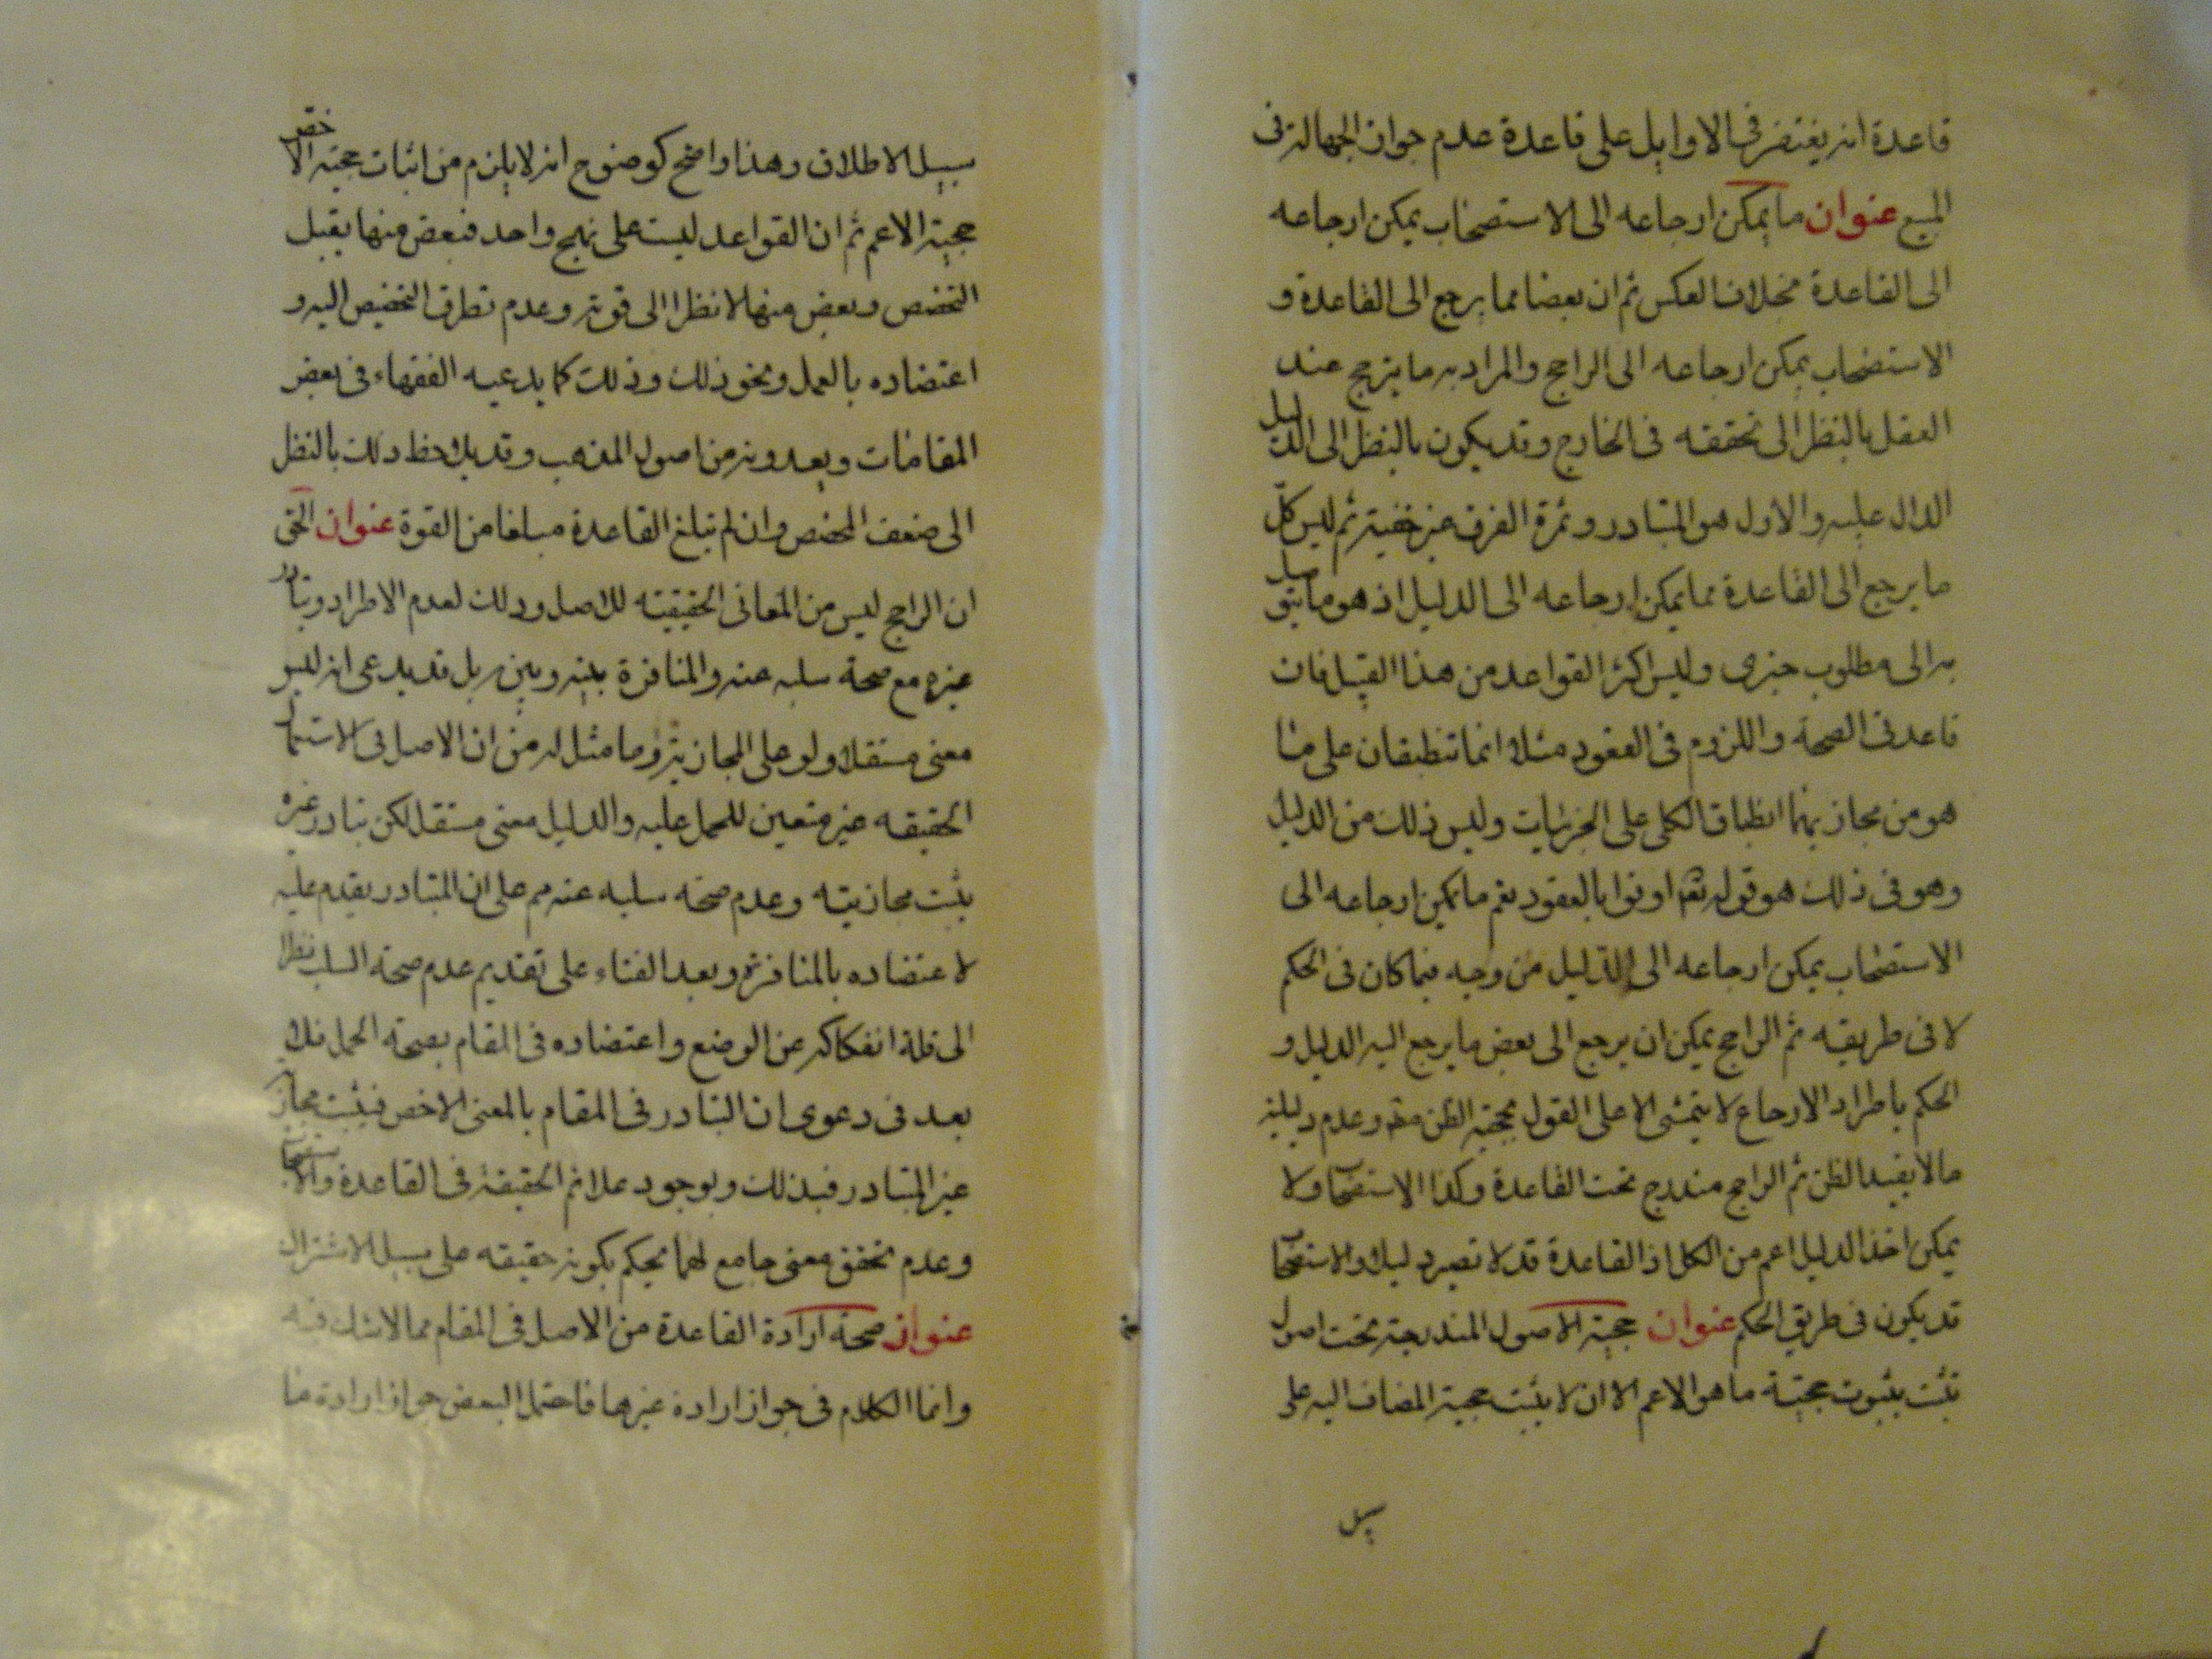 قاعدة انه يغتفر فى الاوايل على قاعدة عدم جواز الجهالة فى
المبيع عنوان ما يمكن ارجاعه الى الاستصحاب يمكن ارجاعه
الى القاعدة بخلاف العكس ثم ان بعضا مما يرجع الى القاعدة و
الاستصحاب يمكن ارجاعه الى الراجح والمراد به ما يترجح عند
العقل بالنظر الى تحققه فى الخارج وقد يكون بالنظر الى الدليل
الدال عليه والاول هو المتبادر وثمرة الفرق غير خفية ثم ليس كل
ما يرجع الى القاعدة مما يمكن ارجاعه الى الدليل اذ هو ما يتوصل
به الى مطلوب خبرى وليس اكثر القواعد من هذا القبيل فان
قاعدتى الصحة واللزوم فى العقود مثلا انما تنطبقان على ما
هو من مجازيهما انطباق الكلى على الجزئيات وليس ذلك من الدليل
وهو فى ذلك هو قوله تعه اوفوا بالعقود نعم ما يمكن ارجاعه الى
الاستصحاب يمكن ارجاعه الى الدليل من وجه فيما كان فى الحكم
لا فى طريقه ثم الراجح يمكن ان يرجع الى بعض ما يرجع اليه الدليل و
الحكم باطراد الارجاع لا يتمشى الا على القول بحجية الظن مطه وعدم دليلية
ما لا يفيد الظن ثم الراجح مندرج تحت القاعدة وكذا الاستصحاب ولا
يمكن اخذ الدليل اعم من الكل اذ القاعدة قد لا تصير دليلا والاستصحاب
قد يكون فى طريق الحكم عنوان حجية الاصول المندرجة تحت اصول
تثبت بثبوت حجية ما هو الاعم الا ان لا يثبت حجية المضاف اليه على
سبيل
سبيل الاطلاق وهذا واضح كوضوح انه لا يلزم من اثبات حجية الاخص
حجية الاعم ثم ان القواعد ليست على نهج واحد فبعض منها يقبل
التخصص وبعض منها لا نظرا الى قوته وعدم تطرق التخصيص اليه و
اعتضاده بالعمل ونحو ذلك وذلك كما يدعيه الفقهاء فى بعض
المقامات ويعدونه من اصول المذهب وقد يلاحظ ذلك بالنظر
الى ضعف المخصص وان لم تبلغ القاعدة مبلغا من القوة عنوان الحق
ان الراجح ليس من المعانى الحقيقية للاصل وذلك لعدم الاطراد وتبادر
غيره مع صحة سلبه عنه والمنافرة بينه وبين بل قد يدعى انه ليس
معنى مستقلا ولو على المجازية وما مثل له من ان الاصل فى الاستعمال
الحقيقه غير متعين للحمل عليه والدليل معنى مستقل لكن تبادر غيره
يثبت مجازيته وعدم صحة سلبه عنه مم على ان المتبادر يقدم عليه
لاعتضاده بالمنافرة وبعد الغناء على تقديم عدم صحة السلب نظرا
الى قلة انفكاكه عن الوضع واعتضاده فى المقام بصحة الحمل فلا
بعد فى دعوى ان التبادر فى المقام بالمعنى الاخص فيثبت مجازية
غير المتبادر فبذلك وبوجود علائم الحقيقة فى القاعدة والاستصحاب
وعدم تحقق معنى جامع لهما يحكم بكونه حقيقه على سبيل الاشتراك
عنوان صحة ارادة القاعدة من الاصل فى المقام مما لا شك فيه
وانما الكلام فى جواز ارادة غيرها فاحتمل البعض جواز ارادة ما